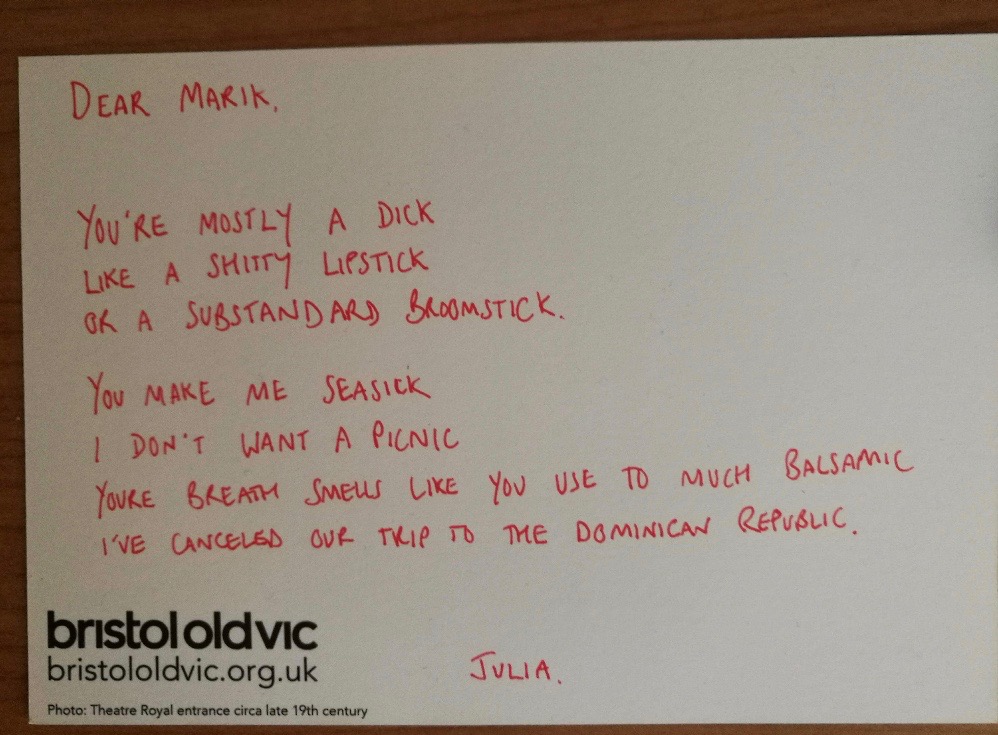 DEAR MARIK,
YOU'RE MOSTLY A DICK
LIKE A SHITTY LIPSTICK
OR A SUBSTANDARD BROOMSTICK.
YOU MAKE ME SEASICK
I DON'T WANT A PICNIC
YOURE BREATH SMELLS LIKE YOU USE TO MUCH BALSAMIC
I'VE CANCELED OUR TRIP TO THE DOMINICAN REPUBLIC.
JULIA.
bristol old vic
bristololdvic.org.uk
Photo: Theatre Royal entrance circa late 19th century